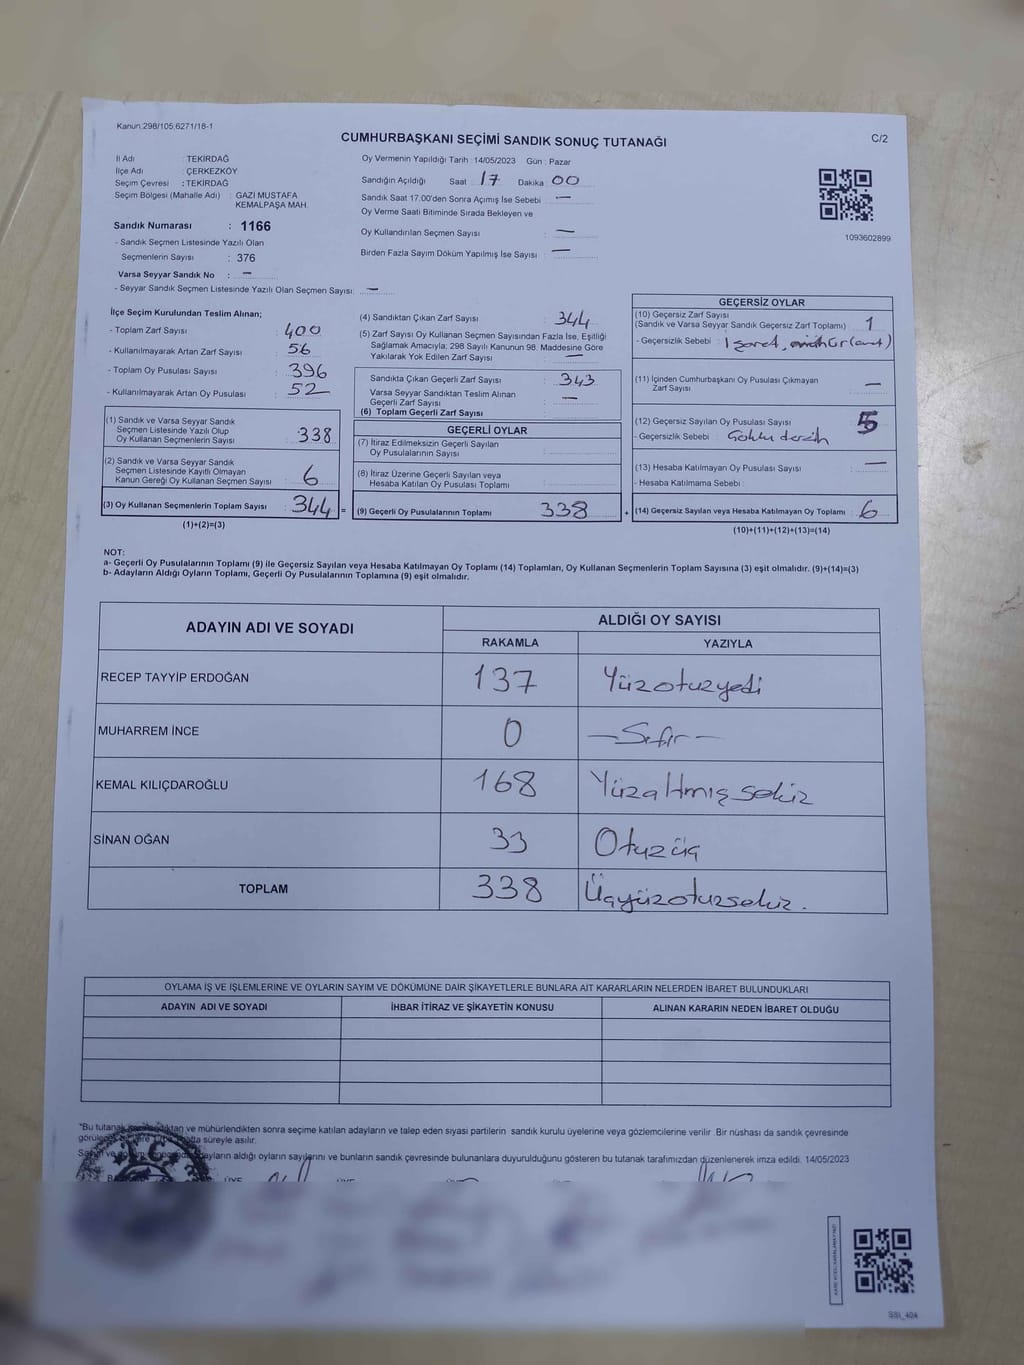 Kanun:298/105,6271/18-1
CUMHURBAŞKANI SEÇİMİ SANDIK SONUÇ TUTANAĞI
C/2
İl Adı : TEKİRDAĞ
İlçe Adı : ÇERKEZKÖY
Seçim Çevresi : TEKİRDAĞ
Seçim Bölgesi (Mahalle Adı) : GAZİ MUSTAFA
KEMALPAŞA MAH.
Sandık Numarası : 1166
- Sandık Seçmen Listesinde Yazılı Olan
Seçmenlerin Sayısı : 376
Varsa Seyyar Sandık No : —
- Seyyar Sandık Seçmen Listesinde Yazılı Olan Seçmen Sayısı: —
Oy Vermenin Yapıldığı Tarih : 14/05/2023 Gün : Pazar
Sandığın Açıldığı Saat : 17 Dakika 00
Sandık Saat 17.00'den Sonra Açımış İse Sebebi —
Oy Verme Saati Bitiminde Sırada Bekleyen ve
Oy Kullandırılan Seçmen Sayısı : —
Birden Fazla Sayım Döküm Yapılmış İse Sayısı : —
1093602899
İlçe Seçim Kurulundan Teslim Alınan;
- Toplam Zarf Sayısı : 400
- Kullanılmayarak Artan Zarf Sayısı : 56
- Toplam Oy Pusulası Sayısı : 396
- Kullanılmayarak Artan Oy Pusulası : 52
(1) Sandık ve Varsa Seyyar Sandık
Seçmen Listesinde Yazılı Olup
Oy Kullanan Seçmenlerin Sayısı : 338
(2) Sandık ve Varsa Seyyar Sandık
Seçmen Listesinde Kayıtlı Olmayan
Kanun Gereği Oy Kullanan Seçmen Sayısı : 6
(3) Oy Kullanan Seçmenlerin Toplam Sayısı : 344 =
(1)+(2)=(3)
(4) Sandıktan Çıkan Zarf Sayısı : 344
(5) Zarf Sayısı Oy Kullanan Seçmen Sayısından Fazla İse, Eşitliği
Sağlamak Amacıyla; 298 Sayılı Kanunun 98. Maddesine Göre
Yakılarak Yok Edilen Zarf Sayısı : —
Sandıkta Çıkan Geçerli Zarf Sayısı : 343
Varsa Seyyar Sandıktan Teslim Alınan
Geçerli Zarf Sayısı : —
(6) Toplam Geçerli Zarf Sayısı :
GEÇERLİ OYLAR
(7) İtiraz Edilmeksizin Geçerli Sayılan
Oy Pusulalarının Sayısı :
(8) İtiraz Üzerine Geçerli Sayılan veya
Hesaba Katılan Oy Pusulası Toplamı :
(9) Geçerli Oy Pusulalarının Toplamı : 338 +
GEÇERSİZ OYLAR
(10) Geçersiz Zarf Sayısı
(Sandık ve Varsa Seyyar Sandık Geçersiz Zarf Toplamı) : 1
- Geçersizlik Sebebi :
(11) İçinden Cumhurbaşkanı Oy Pusulası Çıkmayan
Zarf Sayısı : —
(12) Geçersiz Sayılan Oy Pusulası Sayısı : 5
- Geçersizlik Sebebi :
(13) Hesaba Katılmayan Oy Pusulası Sayısı : —
- Hesaba Katılmama Sebebi :
(14) Geçersiz Sayılan veya Hesaba Katılmayan Oy Toplamı : 6
(10)+(11)+(12)+(13)=(14)
NOT:
a- Geçerli Oy Pusulalarının Toplamı (9) ile Geçersiz Sayılan veya Hesaba Katılmayan Oy Toplamı (14) Toplamları, Oy Kullanan Seçmenlerin Toplam Sayısına (3) eşit olmalıdır. (9)+(14)=(3)
b- Adayların Aldığı Oyların Toplamı, Geçerli Oy Pusulalarının Toplamına (9) eşit olmalıdır.
ADAYIN ADI VE SOYADI
ALDIĞI OY SAYISI
RAKAMLA YAZIYLA
RECEP TAYYİP ERDOĞAN 137 Yüzotuzyedi
MUHARREM İNCE 0 — Sıfır —
KEMAL KILIÇDAROĞLU 168 Yüzaltmışsekiz
SİNAN OĞAN 33 Otuzüç
TOPLAM 338 Üçyüzotuzsekiz.
OYLAMA İŞ VE İŞLEMLERİNE VE OYLARIN SAYIM VE DÖKÜMÜNE DAİR ŞİKAYETLERLE BUNLARA AİT KARARLARIN NELERDEN İBARET BULUNDUKLARI
ADAYIN ADI VE SOYADI İHBAR İTİRAZ VE ŞİKAYETİN KONUSU ALINAN KARARIN NEDEN İBARET OLDUĞU
"Bu tutanak ve mühürlendikten sonra seçime katılan adayların ve talep eden siyasi partilerin sandık kurulu üyelerine veya gözlemcilerine verilir. Bir nüshası da sandık çevresinde
süreyle asılır.
aldığı oyların sayılarını ve bunların sandık çevresinde bulunanlara duyurulduğunu gösteren bu tutanak tarafımızdan düzenlenerek imza edildi. 14/05/2023
SSI_404